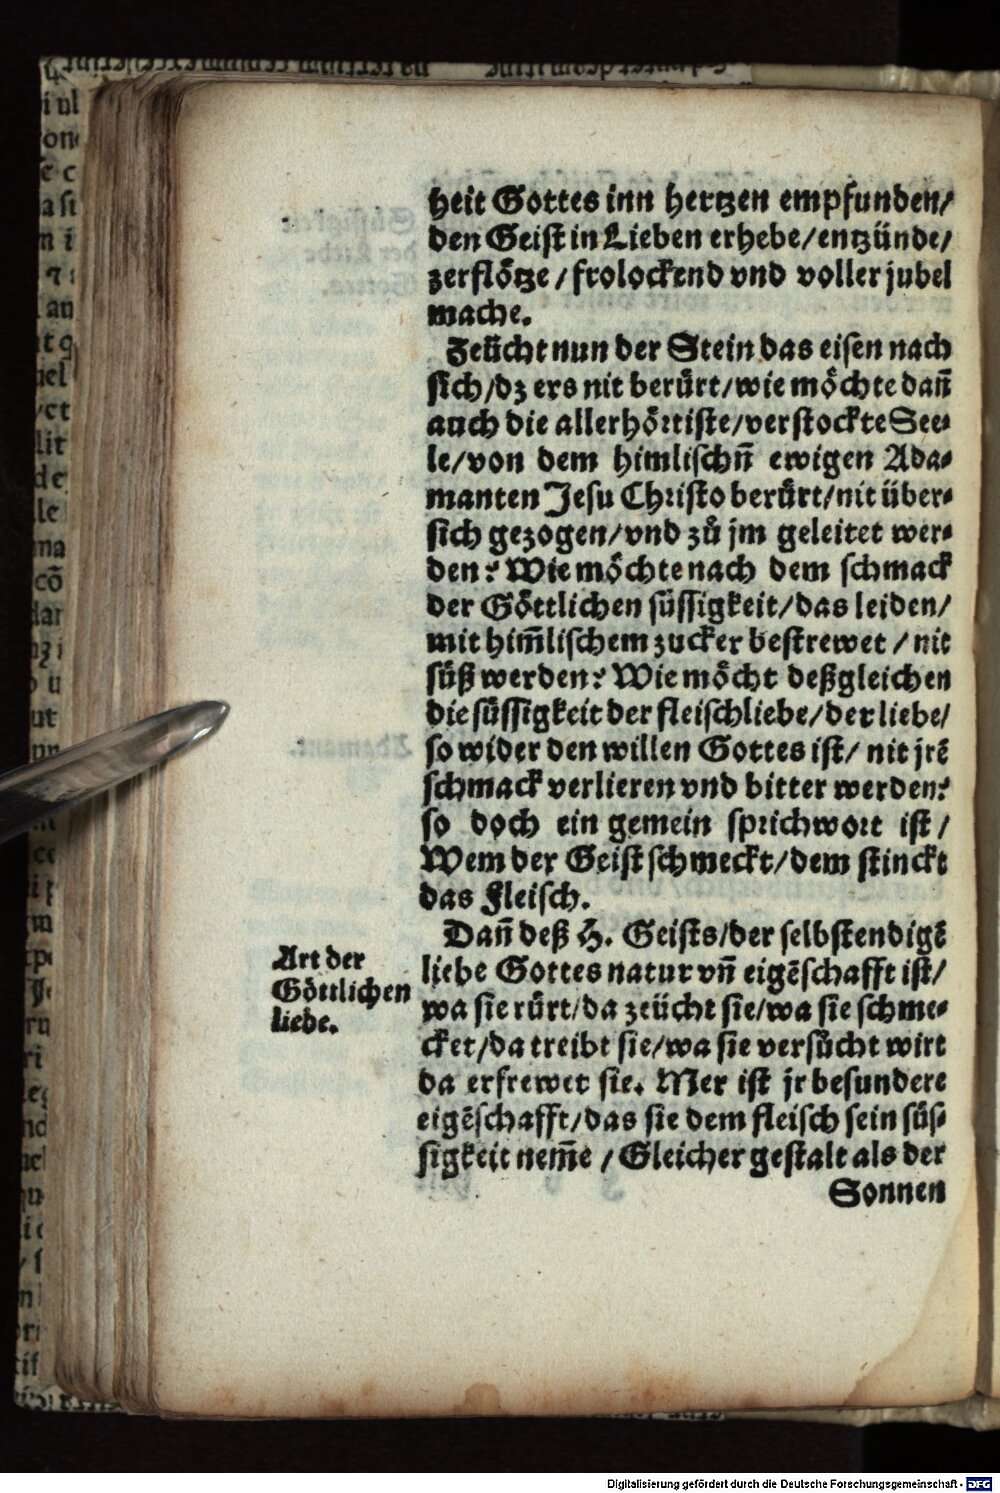 heit Gottes inn hertzen empfunden/
den Geist in Lieben erhebe/entzünde/
zerflötze/frolockend vnd voller jubel
mache.
Zeücht nun der Stein das eisen nach
sich/dz ers nit berürt/wie möchte dañ
auch die allerhörtiste/verstockte See-
le/von dem himlischñ ewigen Ada-
manten Jesu Christo berürt/nit über-
sich gezogen/vnd zů jm geleitet wer-
den? Wie möchte nach dem schmack
der Göttlichen süssigkeit/das leiden/
mit him̃lischem zucker bestrewet/nit
süß werden? Wie möcht deßgleichen
die süssigkeit der fleischliebe/der liebe/
so wider den willen Gottes ist/nit jrẽ
schmack verlieren vnd bitter werden?
so doch ein gemein sprichwort ist/
Wem der Geist schmeckt/dem stinckt
das Fleisch.
Dañ deß H. Geists/der selbstendigẽ
liebe Gottes natur vñ eigẽschafft ist/
wa sie rürt/da zeücht sie/wa sie schme-
cket/da treibt sie/wa sie versůcht wirt
da erfrewet sie. Mer ist jr besundere
eigẽschafft/das sie dem fleisch sein süs-
sigkeit nem̃e/Gleicher gestalt als der
Sonnen
Art der
Göttlichen
liebe.
Digitalisierung gefördert durch die Deutsche Forschungsgemeinschaft - DFG